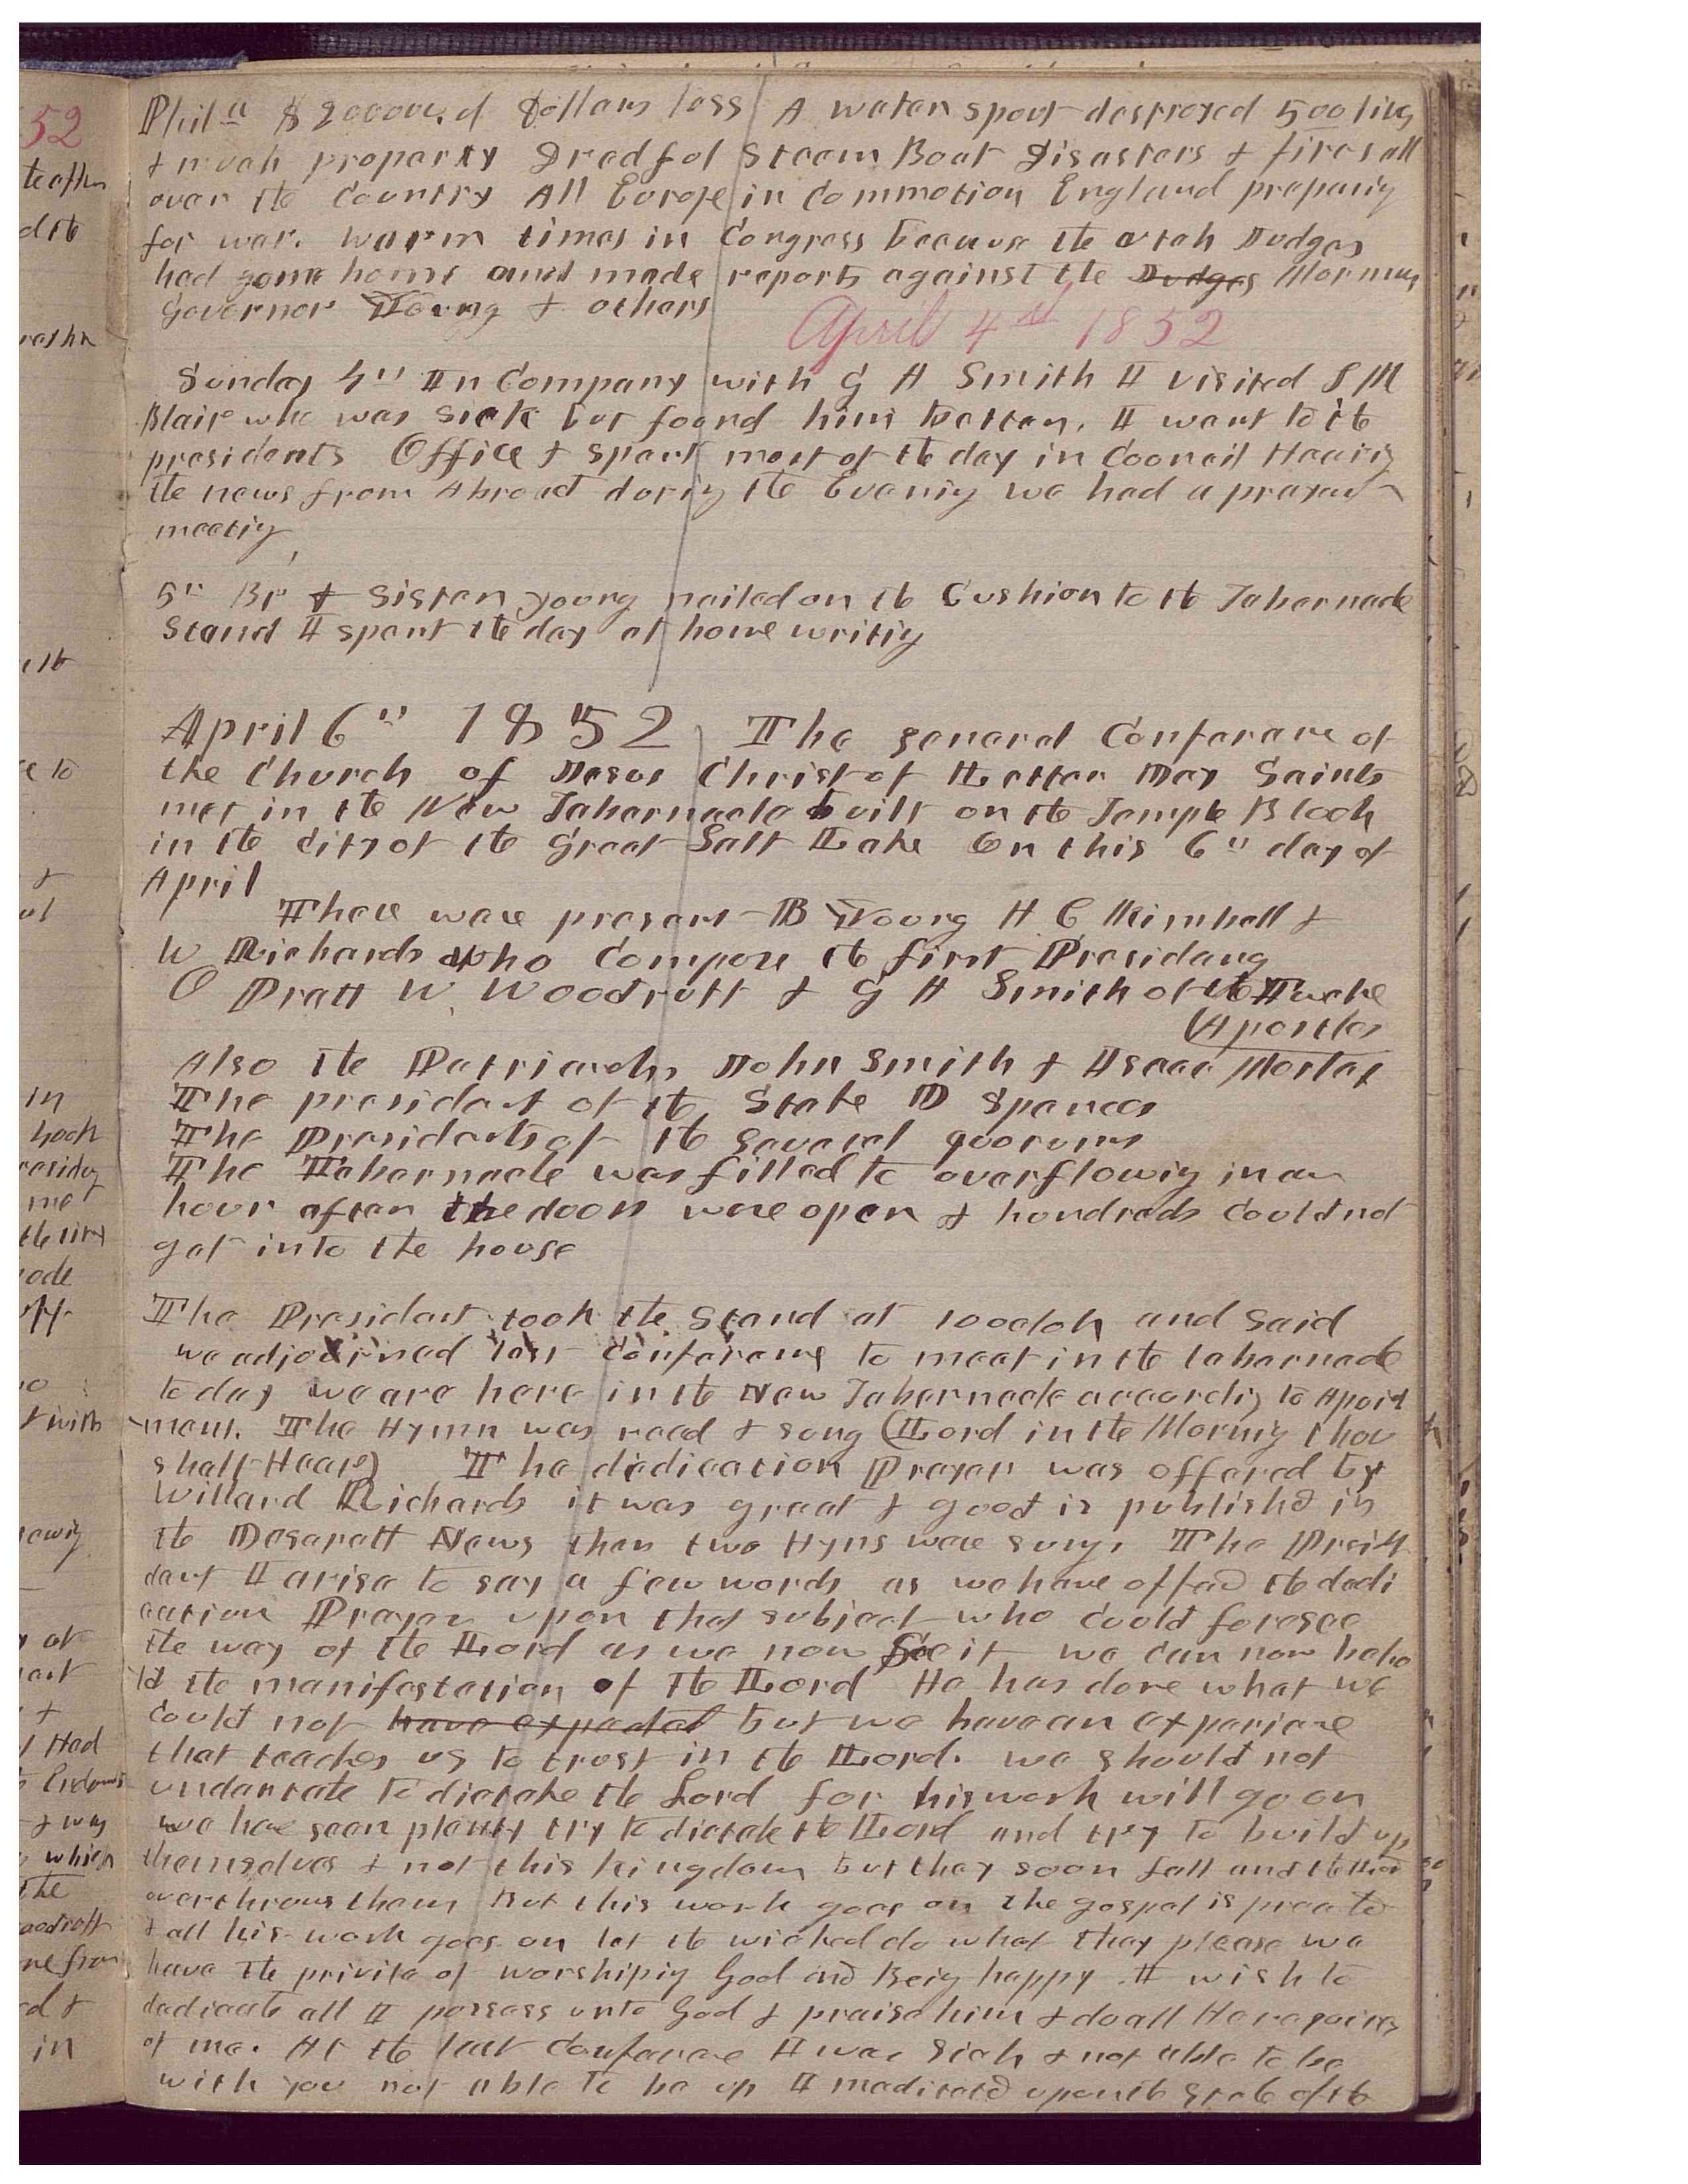 Phila $200000,d dollars loss A water spout destroyed 500 lives
& much property Dredful Steem Boat Disasters & fires all
over the Country All Europe in Commotion England prepariĝ
for war. warm times in Congress because the utah Judges
had gone home and made reports against the Judges Mormons
Governor Young & others
April 4th 1852
Sunday 4th In Company with G A Smith I visited S M
Blair who was sick but found him better. I went to the
presidents Office & spent most of the day in Council Hearig
the news from Abroad durig the Evenig we had a prayer
meetig
5th Br & Sister young nailed on the Cushion to the Tabernacle
Stand I spent the day at home writig
April 6th 1852 The general Conferance of
the Church of Jesus Christ of Latter Day Saints
met in the New Tabernacle built on the Temple Block
in the City of the Great Salt Lake On this 6th day of
April
There were present B Young H C Kimball &
W Richards who Compose the first Presidency
O Pratt W. Woodruff & G A Smith of the Twelve
Apostles
Also the Patriarch, John Smith & Isaac Morley
The president of the, Stake D Spencer
The Presidents of the several quorums
The Tabernacle was filled to overflowig in an
hour after the doors were open & hundreds could not
get into the house
The President took the Stand at 10 oclok and said
we adjourned last Conferance to meet in the tabernacle
to day we are here in the New Tabernacle accordig to Apoint
-ment. The Hymn was read & sung (Lord in the Mornig thou
shalt Hear) The dedication Prayer was offered by
Willard Richards it was great & good is publishd in
the Desarett News then two Hyns were sung. The Presid
dent I arise to say a few words as we have offed the dedi
cation Prayer upon that subject who could foresee
the way of the Lord as we now see it we can now beho
ld the manifestation of the Lord He has done what we
could not have expected but we have an experiance
that teaches us to trust in the Lord. we should not
undertake to dictate the Lord for his work will go on
we have seen plenty try to dictate the Lord and try to build up
themselves & not this kingdom but they soon fall and the Lord
overthrows them But this work goes on the gospel is preachd
& all his work goes on let the wicked do what they please we
have the privilege of worshipig God and Beig happy. I wish to
dedicate all I possess unto God & praise him & do all He requires
of me. At the last Conferance I was sick & not able to be
with you not able to be up I meditated upon the state of the